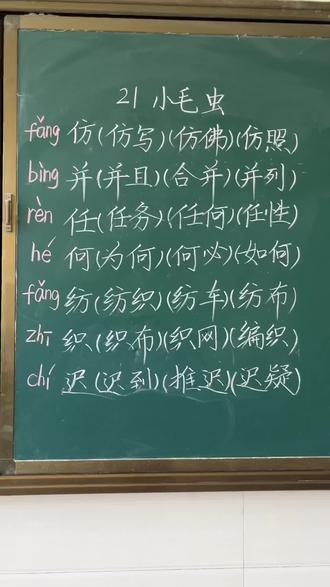 21 小毛虫
fǎng 仿(仿写)(仿佛)(仿照)
bìng 并(并且)(合并)(并列)
rèn 任(任务)(任何)(任性)
hé 何(为何)(何必)(如何)
fǎng 纺(纺织)(纺车)(纺布)
zhī 织(织布)(织网)(编织)
chí 迟(迟到)(推迟)(迟疑)